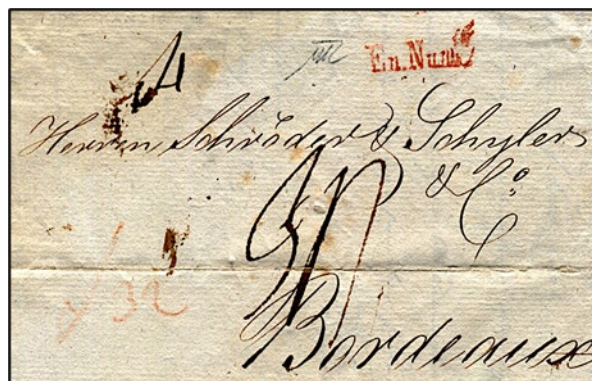 En Numé
Herrn Schröder & Schyler
& Co
32
Bordeaux